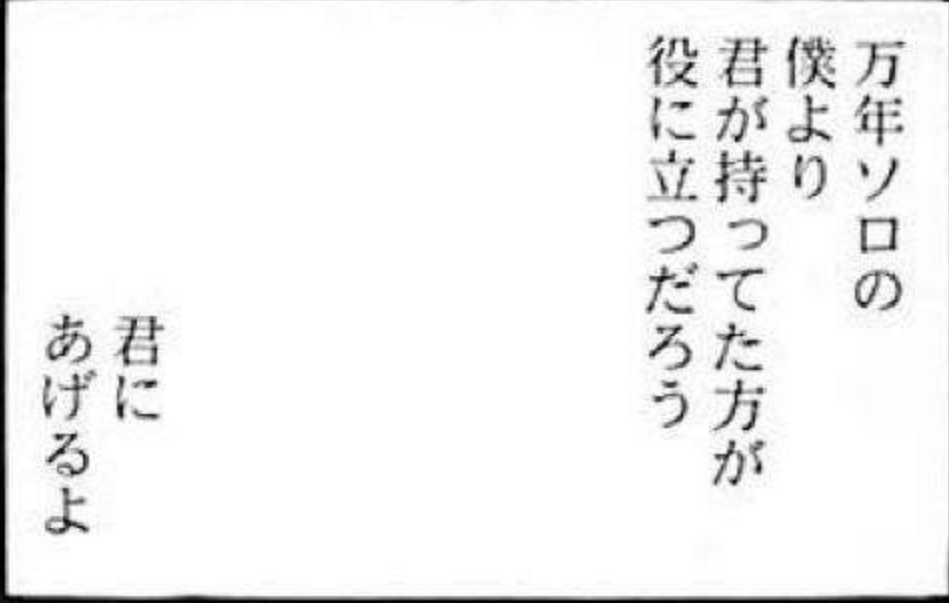 万年ソロの
僕より
君が持ってた方が
役に立つだろう
君に
あげるよ